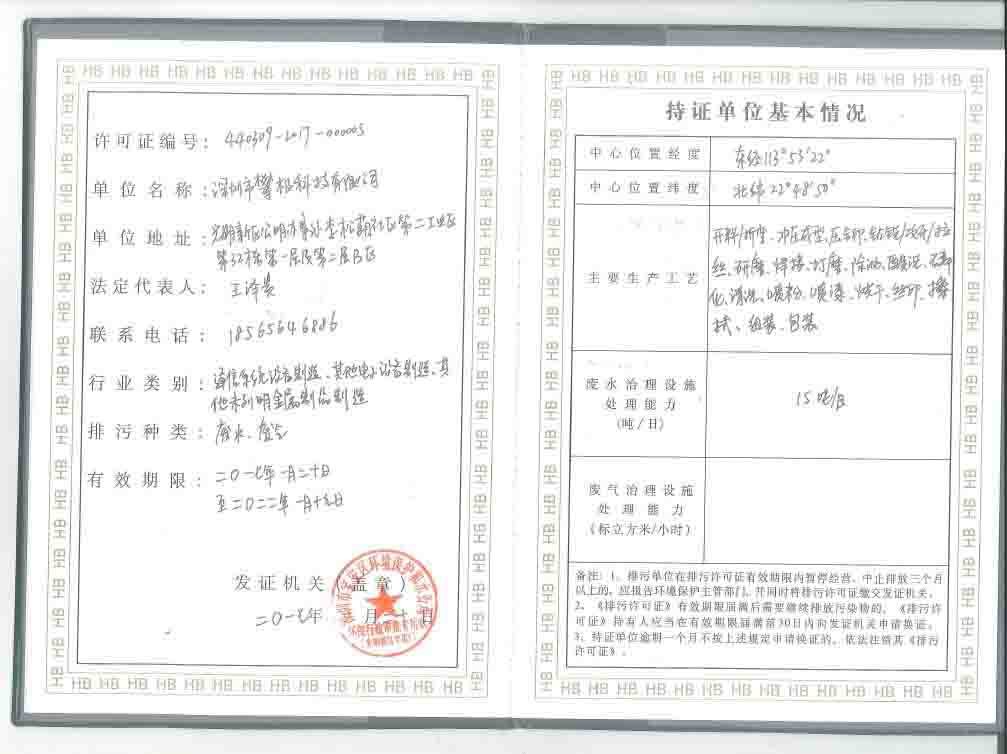 许可证编号: 440309-2017-000005
单位名称: 深圳市攀极科技有限公司
单位地址: 光明新区公明办事处李松蓢社区第二工业区
第32栋第一层及第二层B区
法定代表人:
联系电话: 18565646886
行业类别: 通信系统设备制造、其他电子设备制造、其
他未列明金属制品制造
排污种类: 废水、废气
有效期限: 二〇一七年一月二十日
至二〇二二年一月十九日
发证机关(盖章)
二〇一七年一月二十日
持证单位基本情况
中心位置经度 东经113°53′22″
中心位置纬度 北纬22°48′50″
主要生产工艺
开料/折弯、冲压成型、压铆、钻铣/攻牙/拉
丝、研磨、焊接、打磨、除油、酸洗、磷
化、清洗、喷粉、喷漆、烘干、丝印、擦
拭、组装、包装
废水治理设施
处理能力
(吨/日)
15吨/日
废气治理设施
处理能力
(标立方米/小时)
备注:1、排污单位在排污许可证有效期限内暂停经营、中止排放三个月
以上的,应报告环境保护主管部门,并同时将排污许可证缴交发证机关。
2、《排污许可证》有效期限届满后需要继续排放污染物的,《排污许
可证》持有人应当在有效期限届满前30日内向发证机关申请换证。
3、持证单位逾期一个月不按上述规定申请换证的,依法注销其《排污
许可证》。